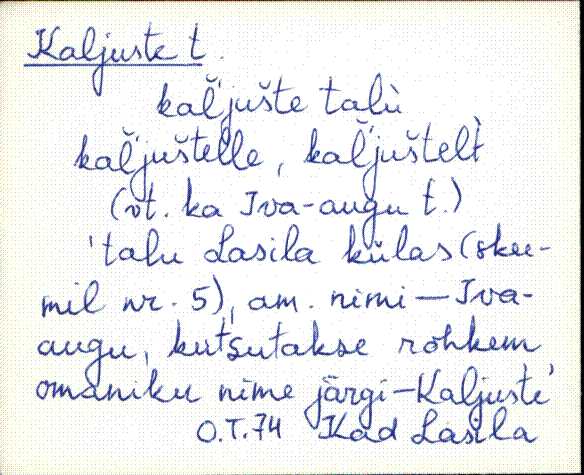 Kaljuste t.
kaľjušte talù
kaľjuštelle, kaľjuštelt̀
(vt. ka Iva-augu t.)
'talu Lasila külas (skee-
mil nr. 5), am. nimi – Iva-
augu, kutsutakse rohkem
omaniku nime järgi – Kaljuste'
O.T. 74 Kad Lasila